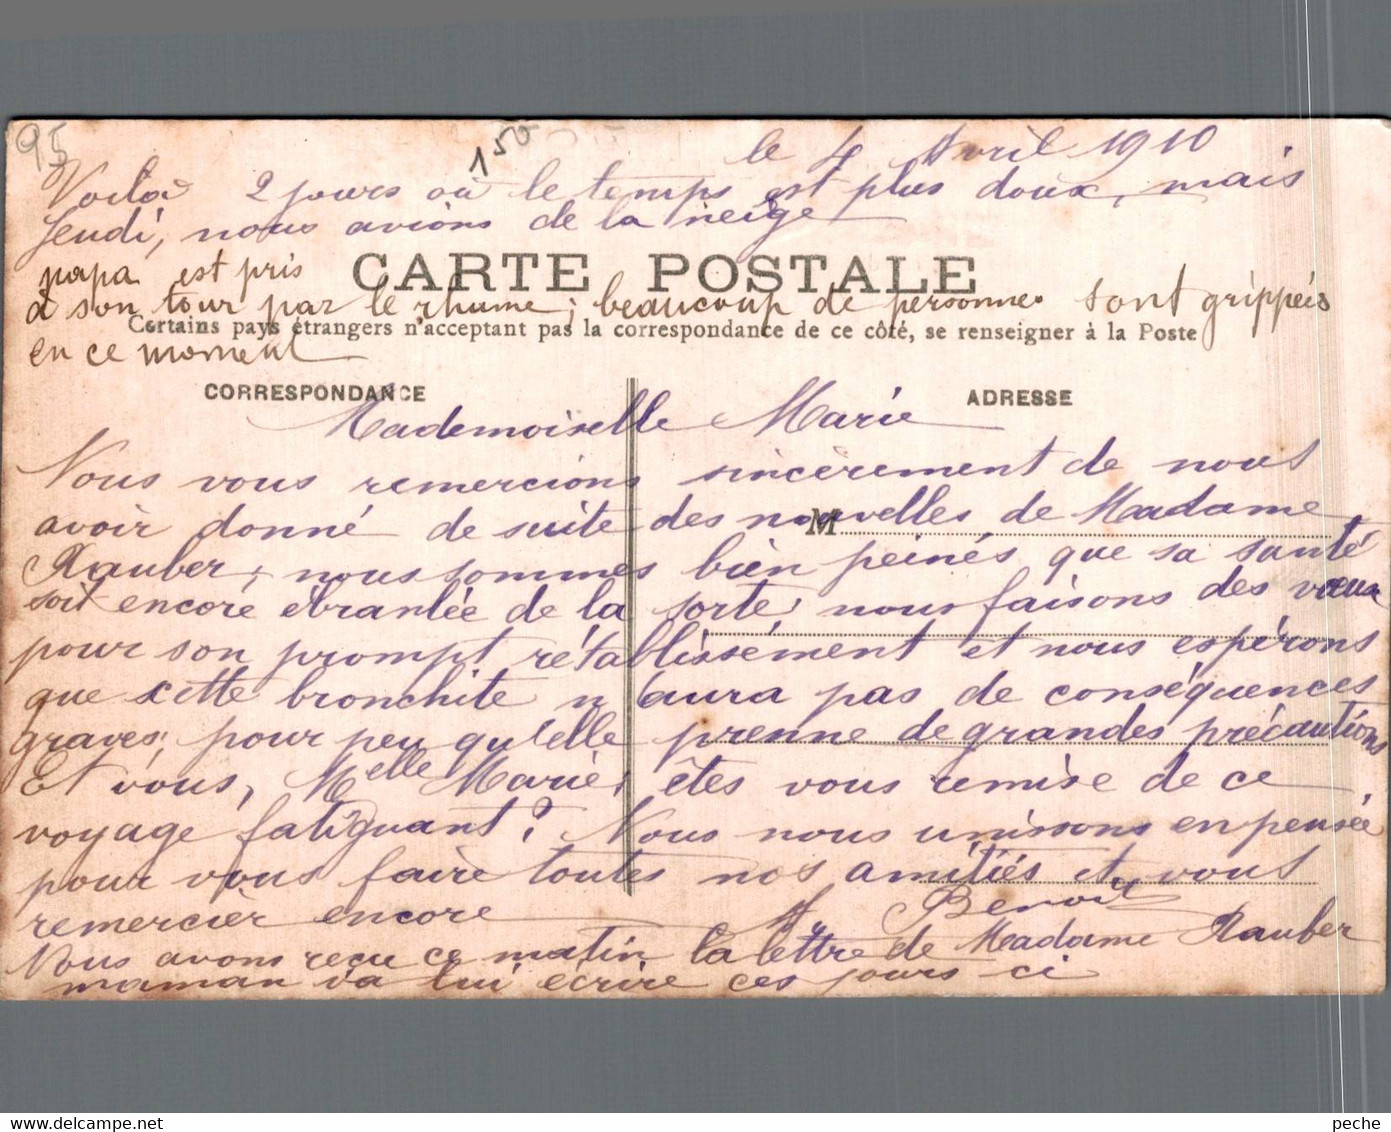 95
150
le 4 Avril 1910
Voilà 2 jours où le temps est plus doux, mais
Jeudi, nous avions de la neige
papa est pris
CARTE POSTALE
à son tour par le rhume; beaucoup de personnes sont grippés
Certains pays étrangers n'acceptent pas la correspondance de ce côté, se renseigner à la Poste
en ce moment
CORRESPONDANCE
ADRESSE
Mademoiselle Marie
Nous vous remercions sincèrement de nous
avoir donné de suite des nouvelles de Madame
M
Rauber, nous sommes bien peinés que sa santé
soit encore ébranlée de la sorte, nous faisons des voeux
pour son prompt rétablissement et nous espérons
que cette bronchite n'aura pas de conséquences
graves, pour peu qu'elle prenne de grandes précautions
Et vous, Melle Marie, êtes vous remise de ce
voyage fatiguant? Nous nous unissons en pensée
pour vous faire toutes nos amitiés et vous
remercier encore
Benoit
Nous avons reçu ce matin la lettre de Madame Rauber
maman va lui écrire ces jours ci
peche